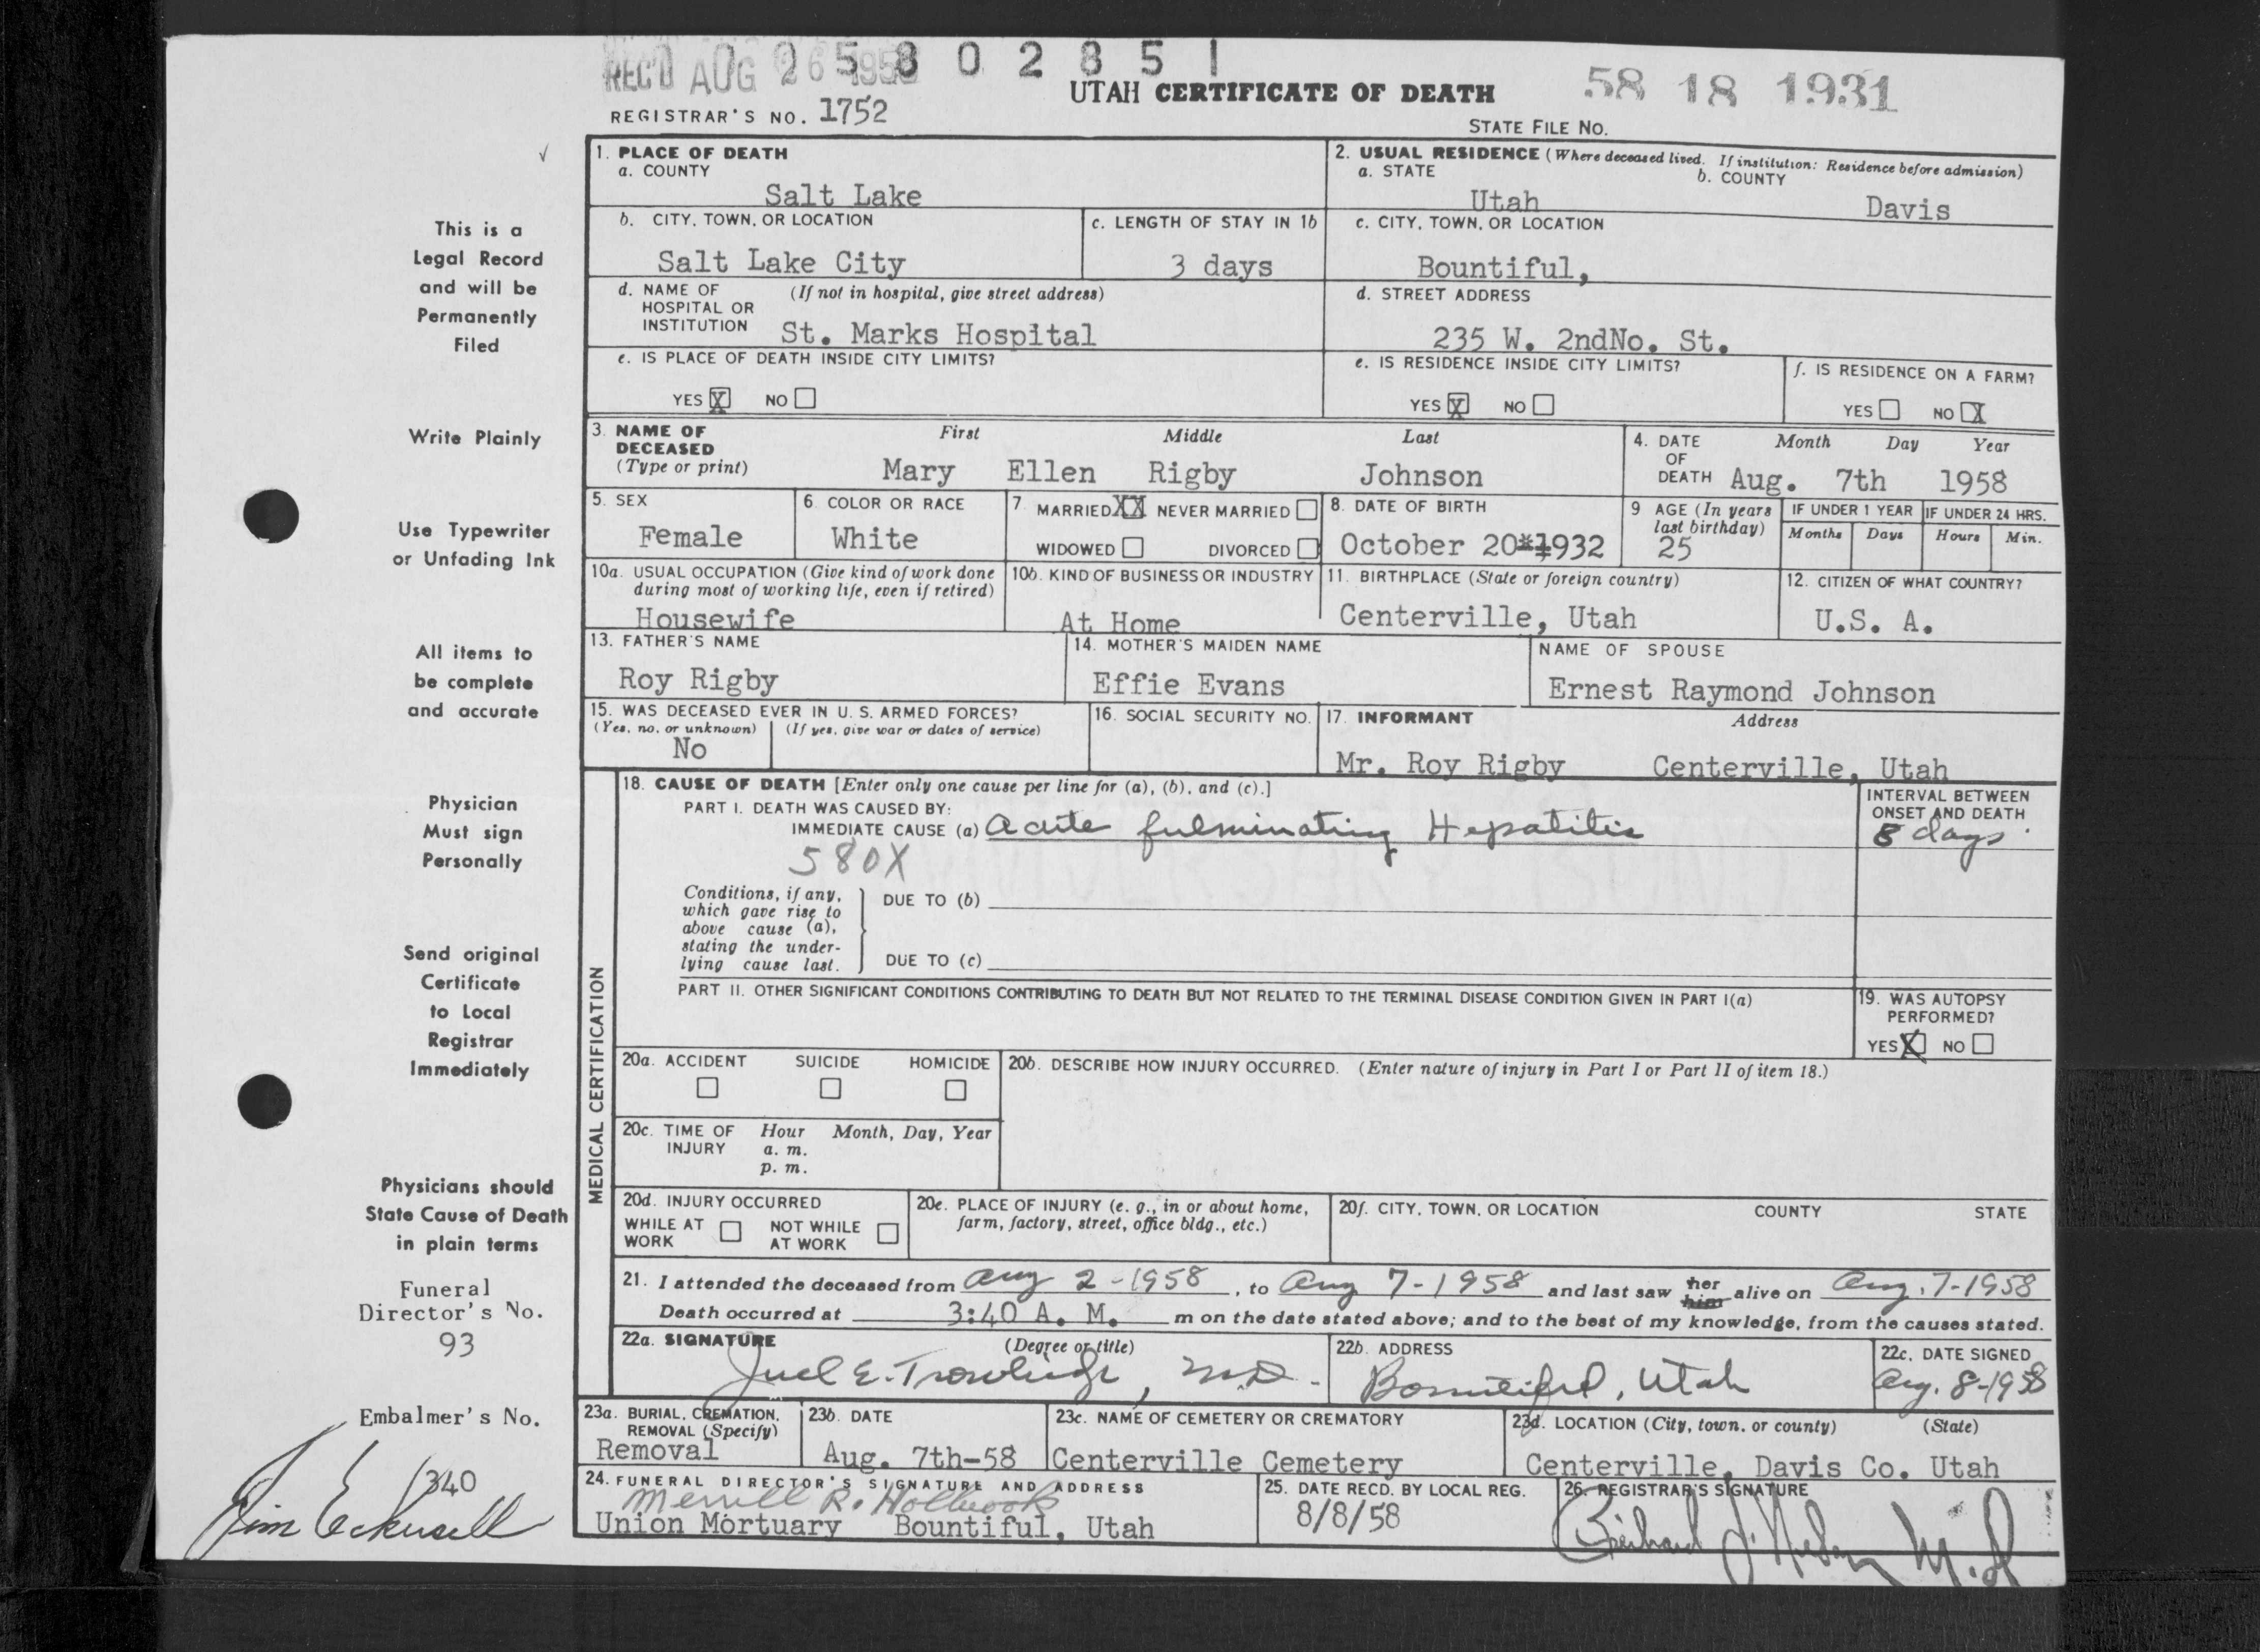 0 0 2 5 8 0 2 8 5 1
REC'D AUG 26 1958
UTAH CERTIFICATE OF DEATH
58 18 1931
REGISTRAR'S NO. 1752
STATE FILE NO.
1. PLACE OF DEATH
a. COUNTY
Salt Lake
2. USUAL RESIDENCE (Where deceased lived. If institution: Residence before admission)
a. STATE b. COUNTY
Utah Davis
b. CITY, TOWN, OR LOCATION
Salt Lake City
c. LENGTH OF STAY IN 1b
3 days
c. CITY, TOWN, OR LOCATION
Bountiful,
d. NAME OF HOSPITAL OR INSTITUTION (If not in hospital, give street address)
St. Marks Hospital
d. STREET ADDRESS
235 W. 2ndNo. St.
e. IS PLACE OF DEATH INSIDE CITY LIMITS?
YES X NO
e. IS RESIDENCE INSIDE CITY LIMITS?
YES X NO
f. IS RESIDENCE ON A FARM?
YES NO X
3. NAME OF DECEASED (Type or print)
First Middle Last
Mary Ellen Rigby Johnson
4. DATE OF DEATH Month Day Year
Aug. 7th 1958
5. SEX
Female
6. COLOR OR RACE
White
7. MARRIED XX NEVER MARRIED
WIDOWED DIVORCED
8. DATE OF BIRTH
October 20 1932
9 AGE (In years last birthday)
25
IF UNDER 1 YEAR
Months Days
IF UNDER 24 HRS.
Hours Min.
10a. USUAL OCCUPATION (Give kind of work done during most of working life, even if retired)
Housewife
10b. KIND OF BUSINESS OR INDUSTRY
At Home
11. BIRTHPLACE (State or foreign country)
Centerville, Utah
12. CITIZEN OF WHAT COUNTRY?
U.S. A.
13. FATHER'S NAME
Roy Rigby
14. MOTHER'S MAIDEN NAME
Effie Evans
NAME OF SPOUSE
Ernest Raymond Johnson
15. WAS DECEASED EVER IN U.S. ARMED FORCES?
(Yes, no, or unknown) (If yes, give war or dates of service)
No
16. SOCIAL SECURITY NO.
17. INFORMANT Address
Mr. Roy Rigby Centerville, Utah
MEDICAL CERTIFICATION
18. CAUSE OF DEATH [Enter only one cause per line for (a), (b), and (c).]
PART I. DEATH WAS CAUSED BY:
IMMEDIATE CAUSE (a) Acute fulminating Hepatitis
580X
INTERVAL BETWEEN ONSET AND DEATH
8 days
Conditions, if any, which gave rise to above cause (a), stating the underlying cause last.
DUE TO (b)
DUE TO (c)
PART II. OTHER SIGNIFICANT CONDITIONS CONTRIBUTING TO DEATH BUT NOT RELATED TO THE TERMINAL DISEASE CONDITION GIVEN IN PART I(a)
19. WAS AUTOPSY PERFORMED?
YES X NO
20a. ACCIDENT SUICIDE HOMICIDE
20b. DESCRIBE HOW INJURY OCCURRED. (Enter nature of injury in Part I or Part II of item 18.)
20c. TIME OF INJURY Hour Month, Day, Year
a. m.
p. m.
20d. INJURY OCCURRED
WHILE AT WORK NOT WHILE AT WORK
20e. PLACE OF INJURY (e. g., in or about home, farm, factory, street, office bldg., etc.)
20f. CITY, TOWN, OR LOCATION COUNTY STATE
21. I attended the deceased from Aug 2-1958, to Aug 7-1958 and last saw her him alive on Aug. 7-1958
Death occurred at 3:40 A. M. m on the date stated above; and to the best of my knowledge, from the causes stated.
22a. SIGNATURE (Degree or title)
Juel E. Trowbridge, M.D.
22b. ADDRESS
Bountiful, Utah
22c. DATE SIGNED
Aug. 8-1958
23a. BURIAL, CREMATION, REMOVAL (Specify)
Removal
23b. DATE
Aug. 7th-58
23c. NAME OF CEMETERY OR CREMATORY
Centerville Cemetery
23d. LOCATION (City, town, or county) (State)
Centerville, Davis Co. Utah
24. FUNERAL DIRECTOR'S SIGNATURE AND ADDRESS
Merrill R. Holbrook
Union Mortuary Bountiful, Utah
25. DATE RECD. BY LOCAL REG.
8/8/58
26. REGISTRAR'S SIGNATURE
This is a
Legal Record
and will be
Permanently
Filed
Write Plainly
Use Typewriter
or Unfading Ink
All items to
be complete
and accurate
Physician
Must sign
Personally
Send original
Certificate
to Local
Registrar
Immediately
Physicians should
State Cause of Death
in plain terms
Funeral
Director's No.
93
Embalmer's No.
340